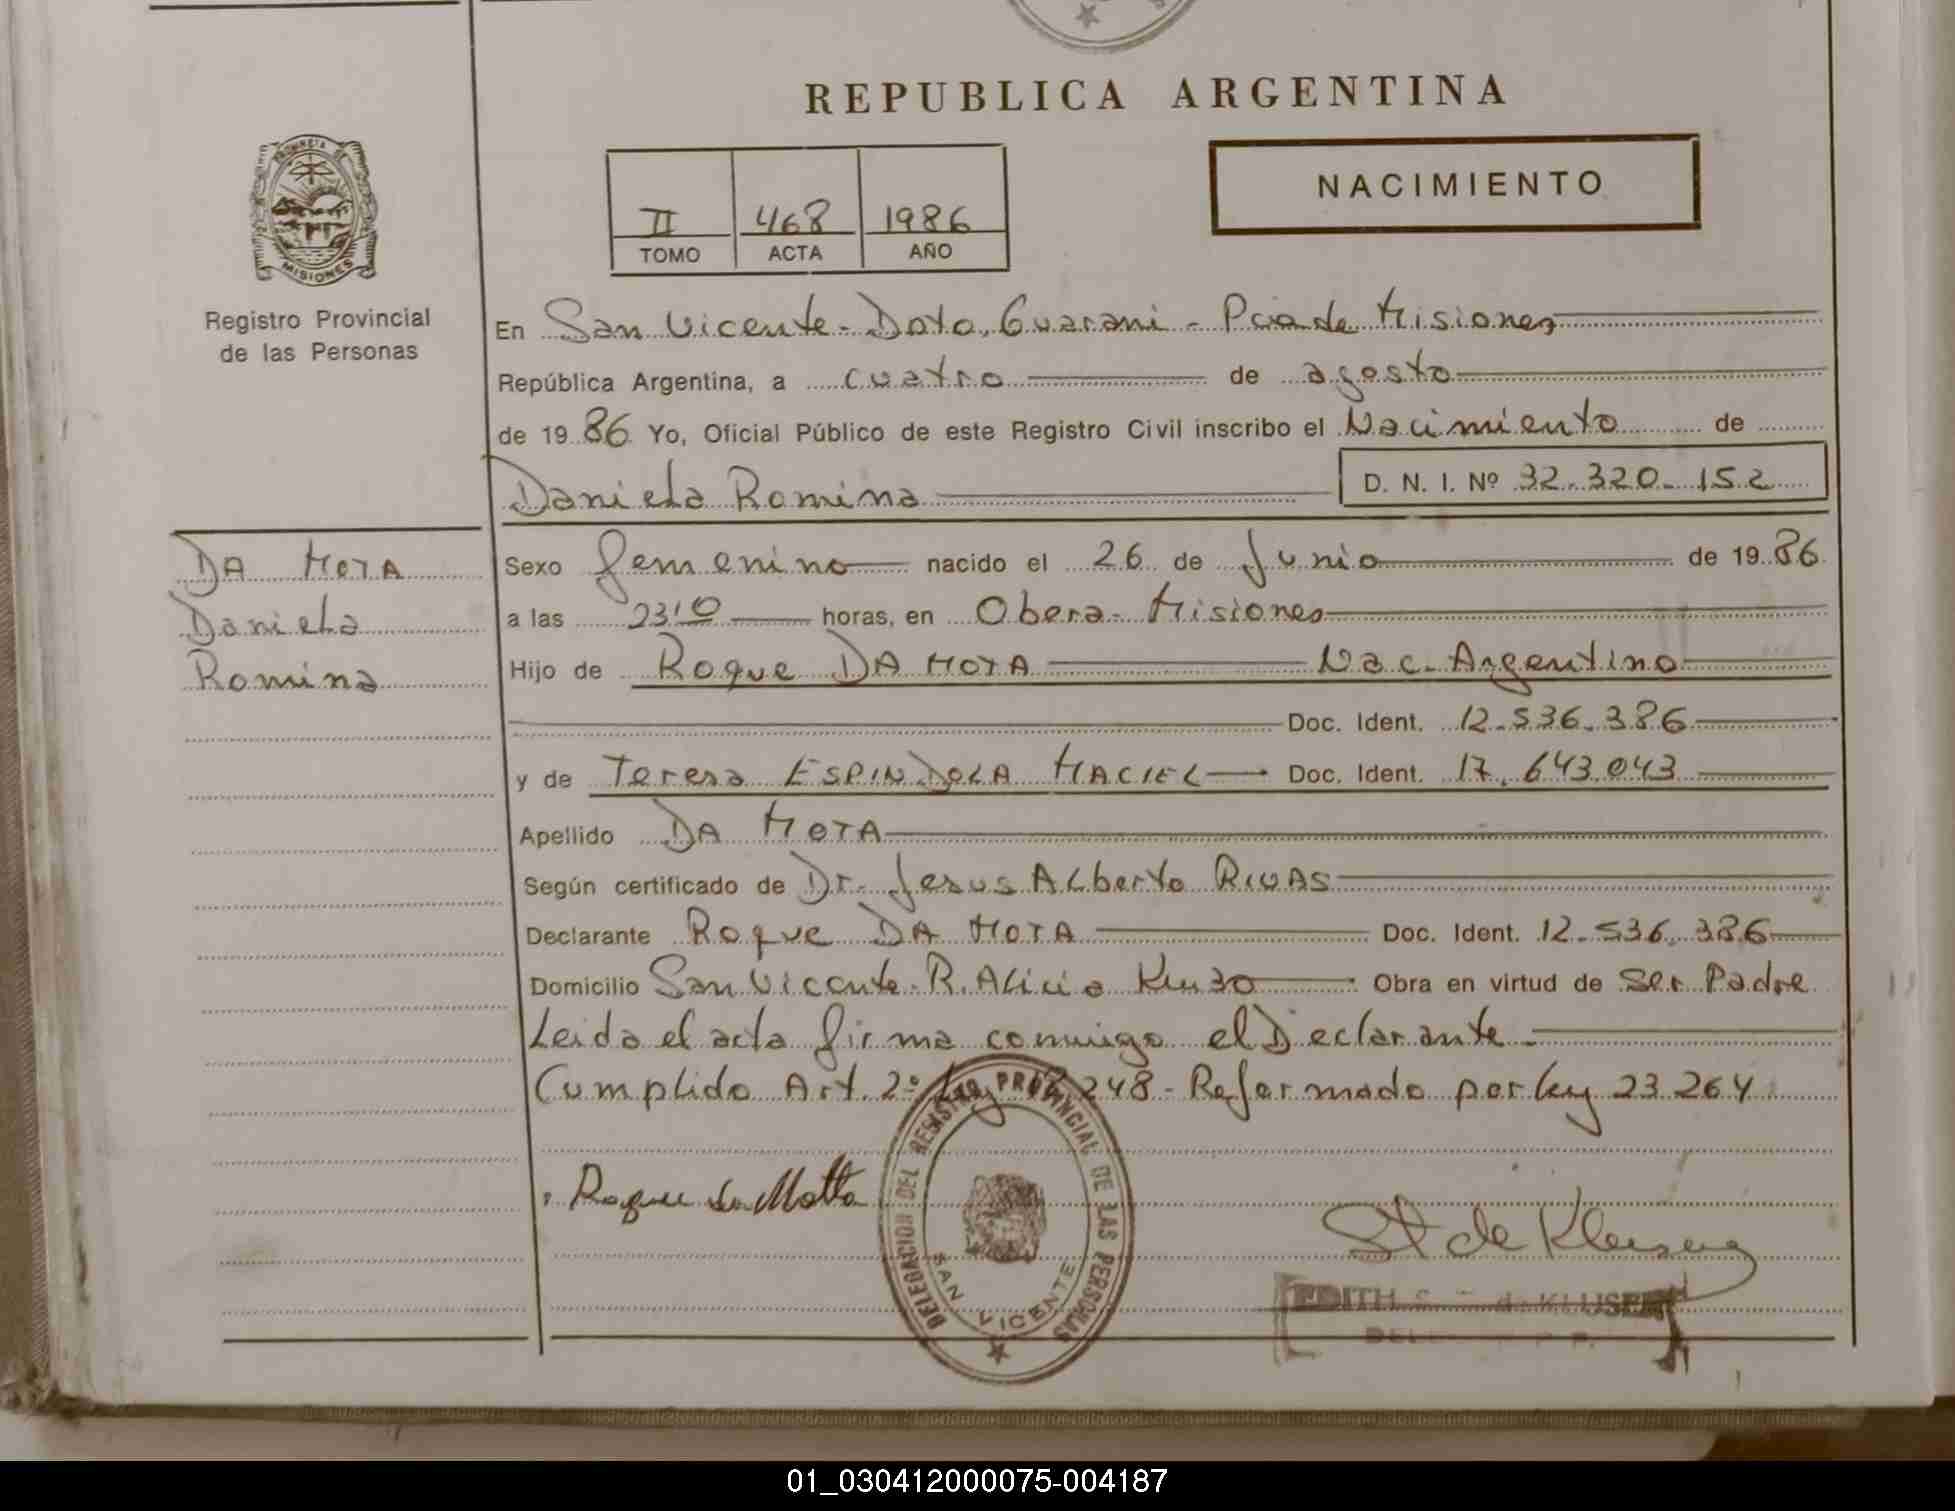 REPUBLICA ARGENTINA
PROVINCIA DE
MISIONES
Registro Provincial
de las Personas
II 468 1986
TOMO ACTA AÑO
NACIMIENTO
En San Vicente - Dpto. Guarani - Pcia de Misiones
República Argentina, a cuatro de agosto
de 1986 Yo, Oficial Público de este Registro Civil inscribo el Nacimiento de
Daniela Romina D. N. I. Nº 32.320.152
DA MOTA
Daniela
Romina
Sexo femenino nacido el 26 de Junio de 1986
a las 23,10 horas, en Obera - Misiones
Hijo de Roque DA MOTA Nac. Argentino
Doc. Ident. 12.536.386
y de Teresa ESPINDOLA MACIEL Doc. Ident. 17.643.043
Apellido DA MOTA
Según certificado de Dr. Jesus ALberto RIVAS
Declarante Roque DA MOTA Doc. Ident. 12.536.386
Domicilio San Vicente - R. Alicia Obra en virtud de ser Padre
Leida el acta firma conmigo el Declarante -
Cumplido Art. 2º Ley 248 - Reformado por ley 23.264
Roque da Motta
DELEGACION DEL REGISTRO PROVINCIAL DE LAS PERSONAS
SAN VICENTE
de
EDITH de KLUSE
01_030412000075-004187